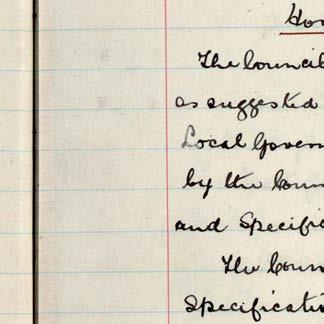 Ho
The Council
as suggested
Local Govern
by the Coun
and Specific
The Coun
Specificatio